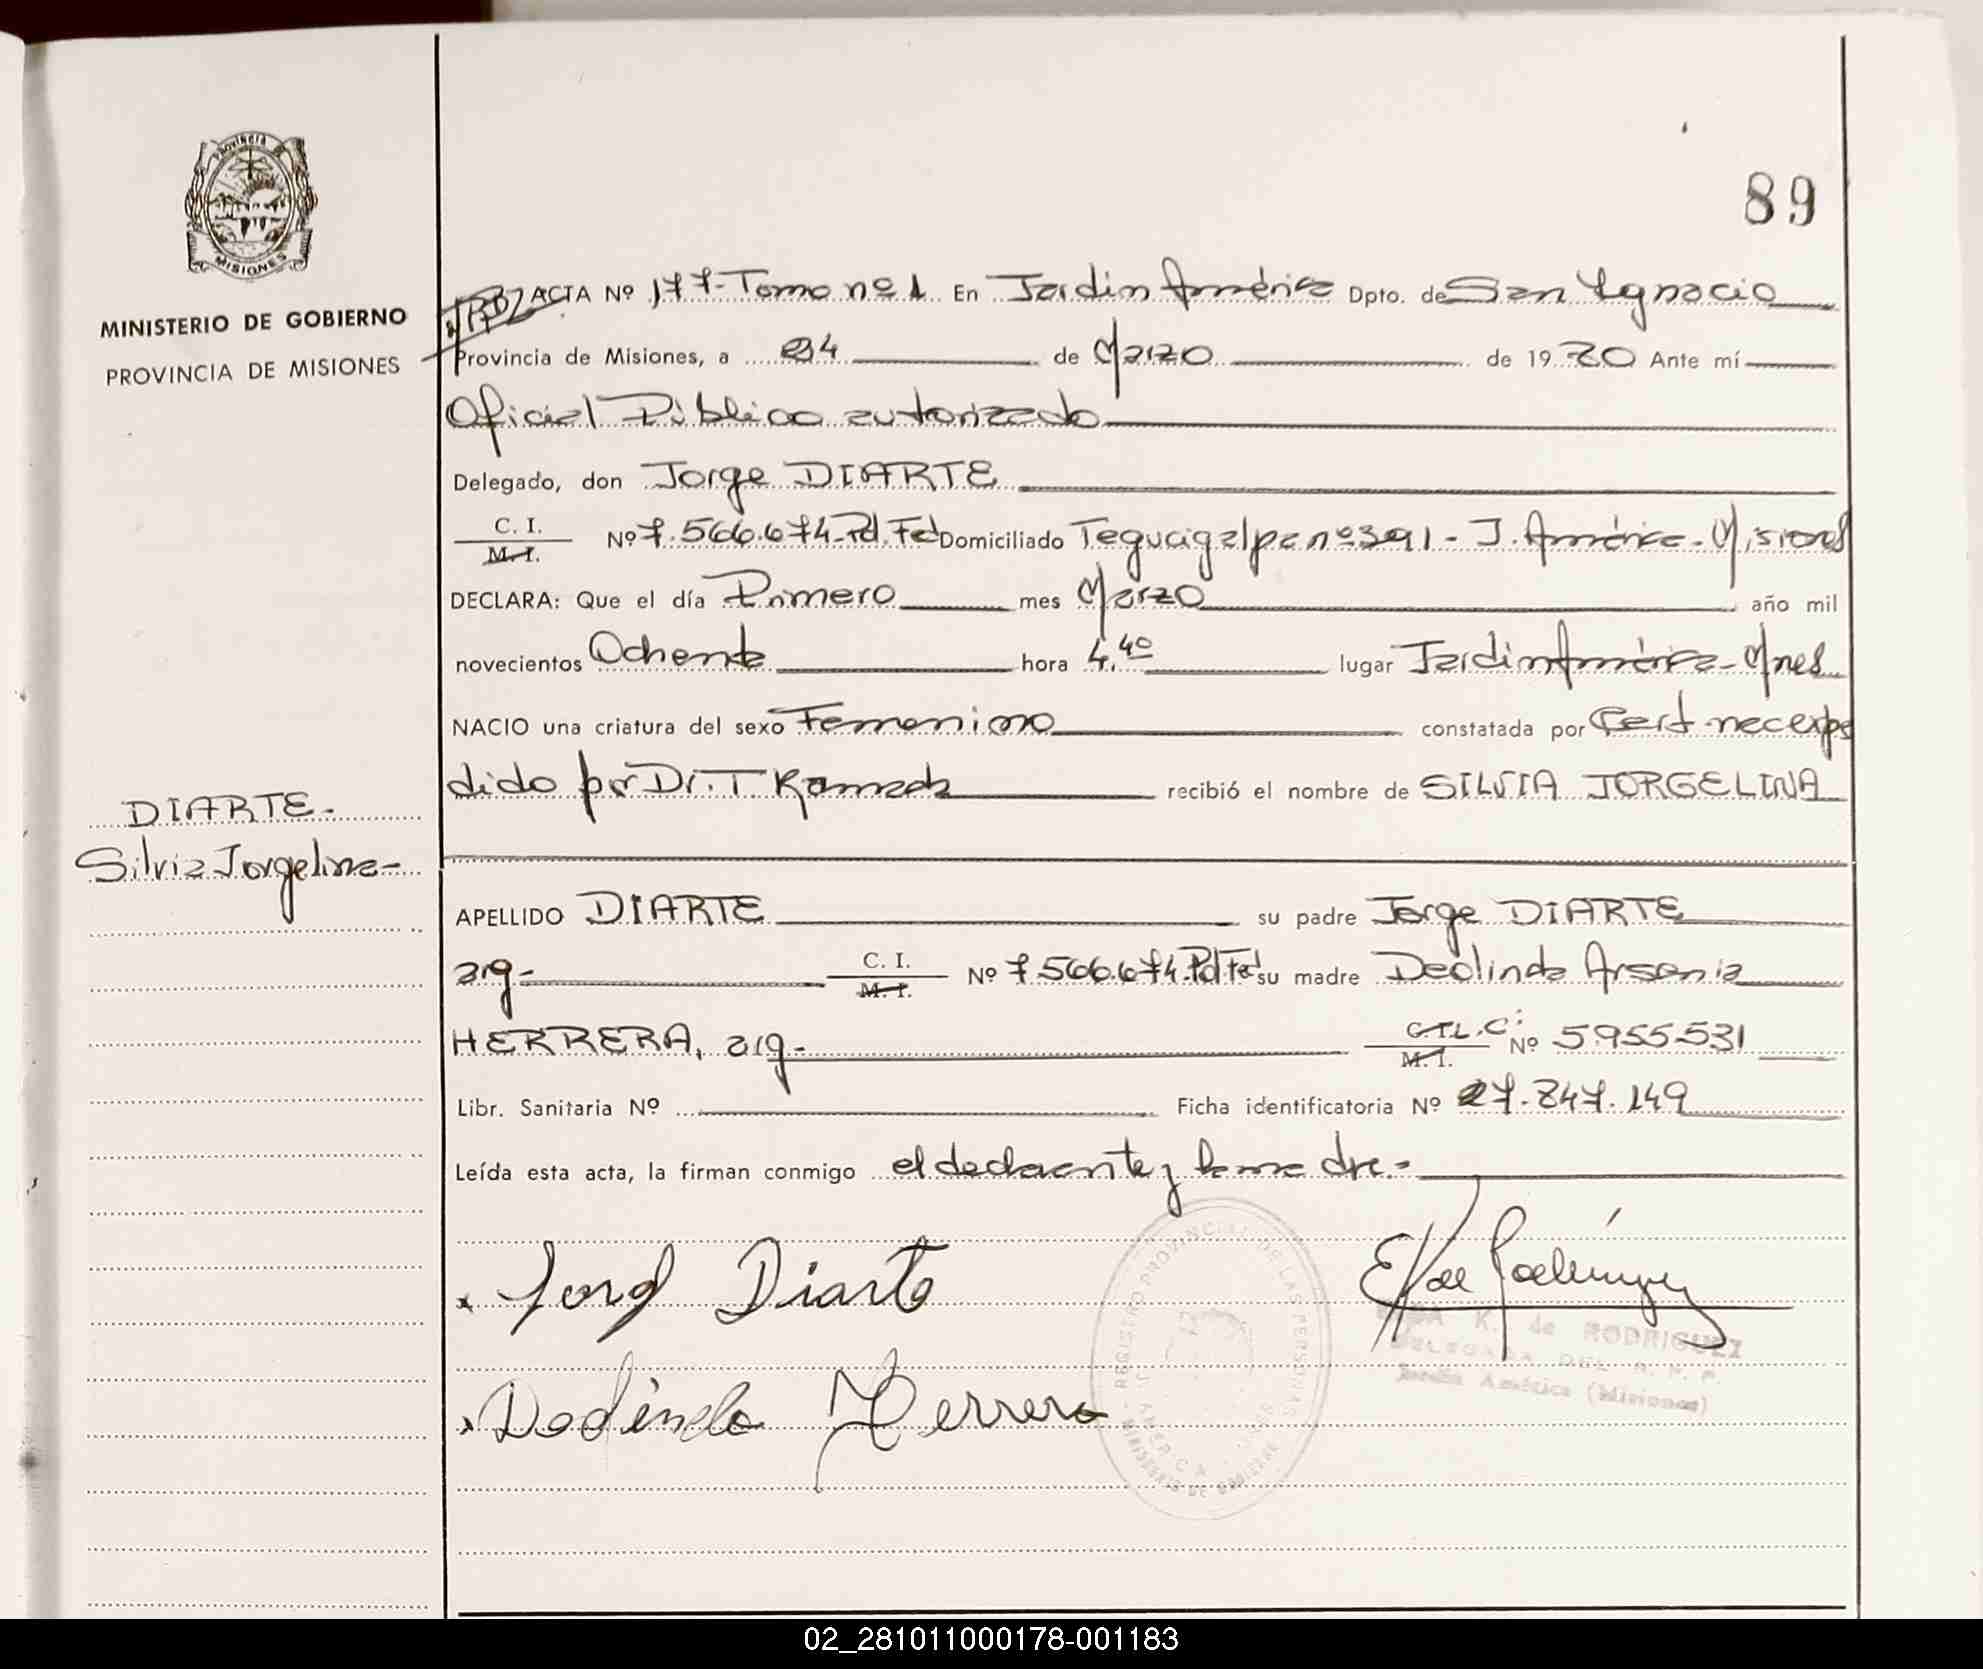 89
PROVINCIA
MISIONES
MINISTERIO DE GOBIERNO
PROVINCIA DE MISIONES
ACTA Nº 177- Tomo nº 1 En Jardin América Dpto. de San Ignacio
Provincia de Misiones, a 24 de Marzo de 19 80 Ante mí
Oficial Público autorizado
Delegado, don Jorge DIARTE
C. I.
M. I. Nº 7.566.674-Pd. Fed Domiciliado Tegucigalpa nº 391 - J. América - Misiones
DECLARA: Que el día Primero mes Marzo año mil
novecientos Ochenta hora 4.40 lugar Jardin América - Mnes
NACIO una criatura del sexo Femenino constatada por Cert. nac expe
dido por Dr. T Ramada recibió el nombre de SILVIA JORGELINA
DIARTE-
Silvia Jorgelina-
APELLIDO DIARTE su padre Jorge DIARTE
arg- C. I.
M. I. Nº 7.566.674.Pd Fed su madre Deolinda Arsenia
HERRERA, arg- L.C.
M. I. Nº 5955531
Libr. Sanitaria Nº Ficha identificatoria Nº 27.847.149
Leída esta acta, la firman conmigo el declarante y la madre.-
Jorge Diarte
Deolinda Herrera
REGISTRO PROVINCIAL DE LAS PERSONAS
MINISTERIO DE GOBIERNO
K. de RODRIGUEZ
DELEGADA DEL R. P. P.
Jardín América (Misiones)
02_281011000178-001183